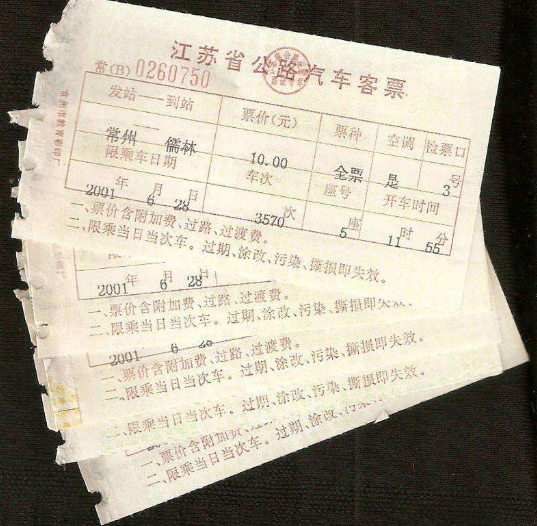 江苏省公路汽车客票
常(B) 0260750
发站——到站 票价(元) 票种 空调 检票口
常州 儒林 10.00 全票 是 3号
限乘车日期 车次 座号 开车时间
2001年 6月 28日 3570次 5座 11时 55分
一、票价含附加费、过路、过渡费。
二、限乘当日当次车。过期、涂改、污染、撕损即失效。
2001年 6月 28日
一、票价含附加费、过路、过渡费。
二、限乘当日当次车。过期、涂改、污染、撕损即失效。
2001 6 28
一、票价含附加费、过路、过渡费。
二、限乘当日当次车。过期、涂改、污染、撕损即失效。
二、限乘当日当次车。过期、涂改、污染、撕损即失效。
一、票价含附加费、过路、过渡费。
二、限乘当日当次车。过期、涂改、污染